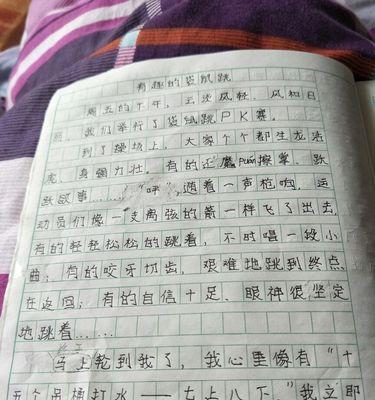 有趣的袋鼠跳
周五的下午，云淡风轻，风和日
丽，我们举行了袋鼠跳PK赛。
到了操场上，大家个个都生龙活
虎、身强力壮。有的还魔puán擦掌，跃
跃欲事……“呼”，随着一声枪响，运
动员们像一支离弦的箭一样飞了出去，
有的轻轻松松的跳着，不时唱一段小
曲；有的咬牙切齿，艰难地跳到终点
在返回；有的自信十足、眼神很坚定
地跳着……
马上轮到我了，我心里像有“十
五个吊桶打水——七上八下。”我立即